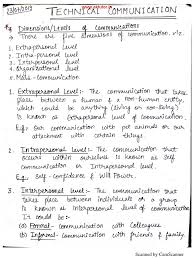 TECHNICAL COMMUNICATION
Dimension/Levels of Communication:-
There are five dimensions of communication. viz.
1. Extrapersonal level
2. Intrapersonal level
3. Interpersonal level
4. Organizational level
5. Mass-Communication
1. Extrapersonal Level:- The communication that takes
place between a human & a non-human entity,
which could be anything (living or non-living)
is known as Extrapersonal communication.
e.g. Our communication with pet animal or our
attachment with object.
2. Intrapersonal Level:- The communication that
occurs within ourselves is known as Self
communication or Intrapersonal level.
e.g. Self-confidence & Will Power.
3. Interpersonal Level:- The communication that
takes place between human to human
is known as Interpersonal level of communication.
It could be:
(a) Formal- communication with colleagues
(b) Informal- communication with friends & family
Scanned by CamScanner